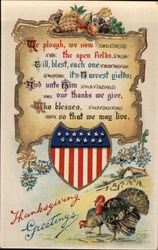 We plough, we sow
the open fields.
Till, blest, each one
its Harvest yields;
And unto Him
our thanks we give,
Who blesses,
so that we may live.
Thanksgiving
Greetings